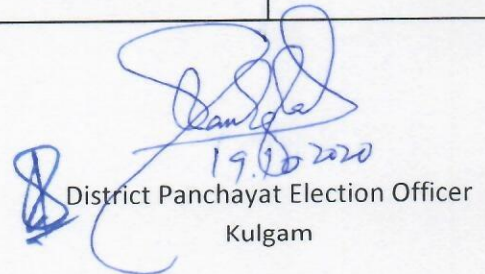 19.10 2020
District Panchayat Election Officer
Kulgam